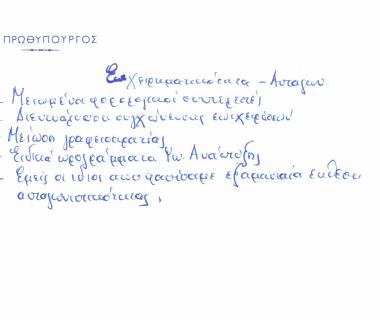 ΠΡΩΘΥΠΟΥΡΓΟΣ
Επιχειρηματικότητα - Ανταγων.
- Μειωμένοι φορολογικοί συντελεστές
- Διευκόλυνση συγχώνευσης επιχειρήσεων
- Μείωση γραφειοκρατίας
- Ειδικά προγράμματα Υπ. Ανάπτυξης
- Εμείς οι ίδιοι αποφασίσαμε εξαμηνιαία έκθεση
ανταγωνιστικότητας,